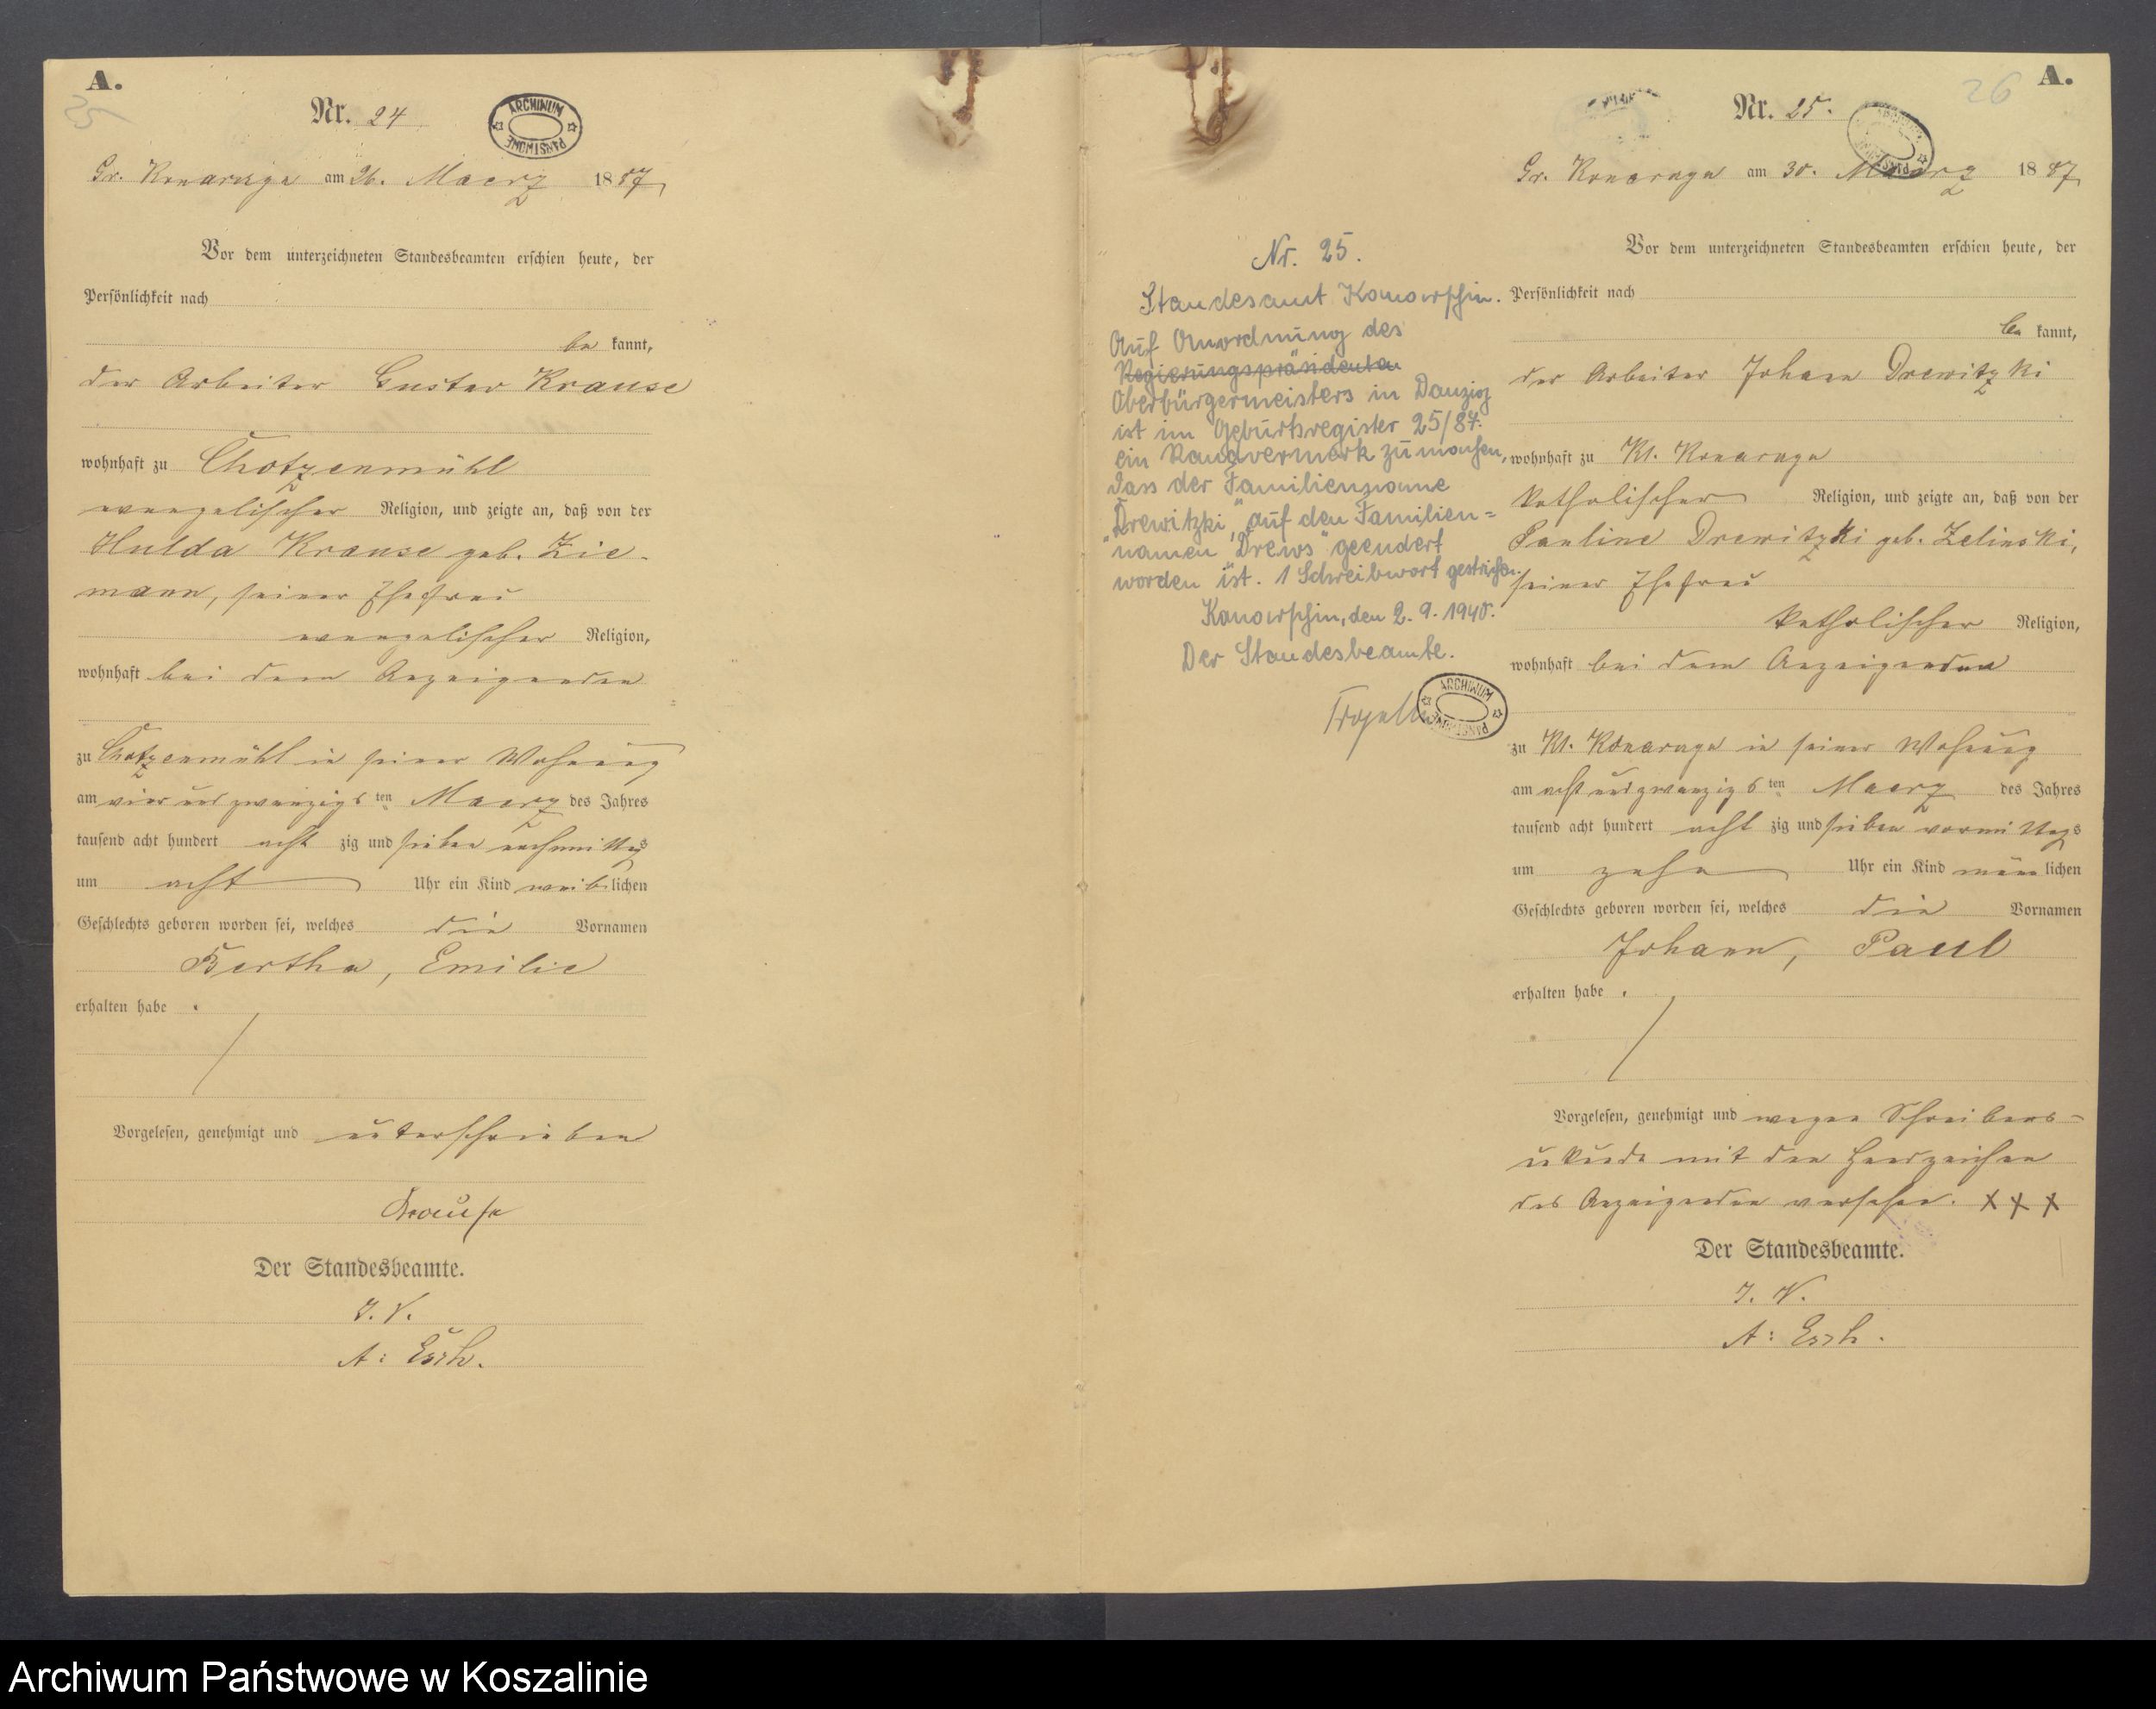 A.
25
Nr. 24
ARCHIWUM PAŃSTWOWE
Gr. Konarczyn am 26. Maerz 1887,
Vor dem unterzeichneten Standesbeamten erschien heute, der
Persönlichkeit nach
be kannt,
der Arbeiter Gustav Krause
wohnhaft zu Chotzenmühl
evangelischer Religion, und zeigte an, daß von der
Hulda Krause geb. Zie-
mann, seiner Ehefrau
evangelischer Religion,
wohnhaft bei dem Anzeigenden
zu Chotzenmühl in seiner Wohnung
am vier und zwanzigs ten Maerz des Jahres
tausend acht hundert acht zig und sieben nachmittags
um acht Uhr ein Kind weib lichen
Geschlechts geboren worden sei, welches die Vornamen
Bertha, Emilie
erhalten habe.
Vorgelesen, genehmigt und unterschrieben
Krause
Der Standesbeamte.
I. V.
A:
Nr. 25.
Standesamt
Auf Anordnung des
Regierungspräsidenten
Oberbürgermeisters in Danzig
ist im Geburtsregister 25/87.
ein Randvermerk zu machen,
dass der Familienname
"Drewitzki" auf den Familien=
namen "Drews" geendert
worden ist. 1 Schreibwort gestrichen.
den 2. 9. 1940.
Der Standesbeamte.
ARCHIWUM PAŃSTWOWE
26
A.
Nr. 25.
ARCHIWUM PAŃSTWOWE
Gr. Konarczyn am 30. Maerz 1887,
Vor dem unterzeichneten Standesbeamten erschien heute, der
Persönlichkeit nach
be kannt,
der Arbeiter Johann Drewitzki
wohnhaft zu Kl. Konarczyn
katholischer Religion, und zeigte an, daß von der
Pauline Drewitzki geb. Zelinski,
seiner Ehefrau
katholischer Religion,
wohnhaft bei dem Anzeigenden
zu Kl. Konarczyn in seiner Wohnung
am acht und zwanzigs ten Maerz des Jahres
tausend acht hundert acht zig und sieben vormittags
um zehn Uhr ein Kind män lichen
Geschlechts geboren worden sei, welches die Vornamen
Johann, Paul
erhalten habe.
Vorgelesen, genehmigt und wegen Schreibens-
unkunde mit den Handzeichen
des Anzeigenden versehen. X X X
Der Standesbeamte.
I. V.
A:
Archiwum Państwowe w Koszalinie